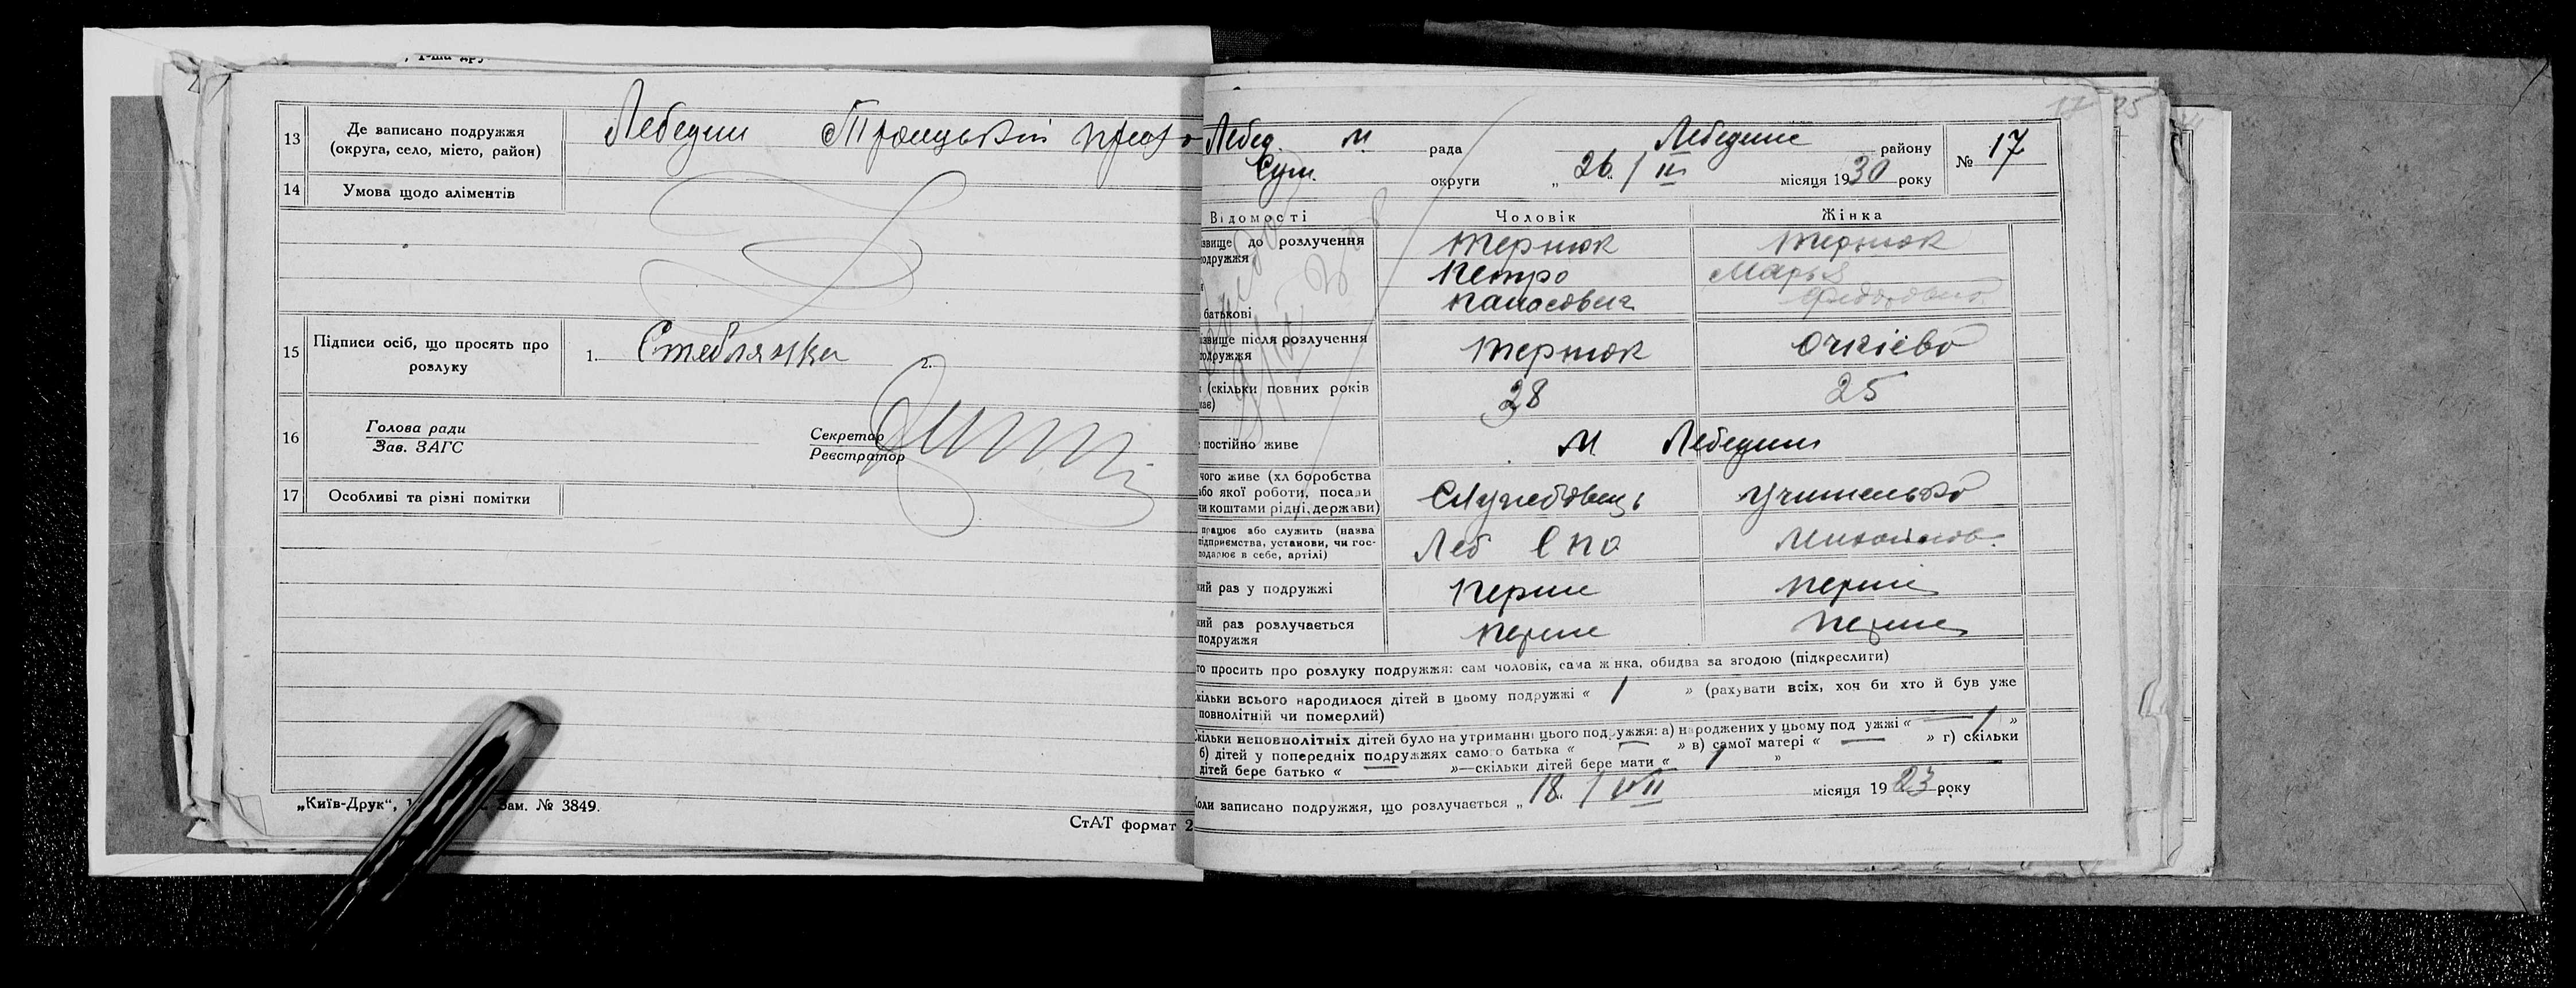 , 1-ша дру
13 Де записано подружжя (округа, село, місто, район) Лебедин Троицький
14 Умова щодо аліментів
15 Підписи осіб, що просять про розлуку 1. Стеблянка 2.
16 Голова ради
Зав. ЗАГС
Секретар
Реєстратор
17 Особливі та різні помітки
„Київ-Друк“, 1 Зам. № 3849.
СтАТ формат 2
17 25
Лебед. М рада Лебединс району № 17
Сум. округи „ 26 / III місяця 1930 року
Відомості Чоловік Жінка
звище до розлучення подружжя Тернюк Тернюк
Петро Марья
батькові Панасович Федоровна
звище після розлучення подружжя Тернюк Очкієво
(скільки повних років має) 28 25
постійно живе М Лебедин
чого живе (хл боробства
або якої роботи, посади
чи коштами рідні, держави) Службовець Учителька
працює або служить (назва
підприємства, установи, чи гос-
подарює в себе, артілі) Леб СПО
кий раз у подружжі Перше Перше
кий раз розлучається
подружжя Перше Перше
то просить про розлуку подружжя: сам чоловік, сама жінка, обидва за згодою (підкреслити)
кільки всього народилося дітей в цьому подружжі « 1 » (рахувати всіх, хоч би хто й був уже
повнолітній чи померлий)
кільки неповнолітніх дітей було на утриманні цього подружжя: а) народжених у цьому под ужжі « — 1 »
б) дітей у попередніх подружжях самого батька « — » в) самої матері « — » г) скільки
дітей бере батько « — »—скільки дітей бере мати « 1 »
Коли записано подружжя, що розлучається „ 18 / VII місяця 1923 року